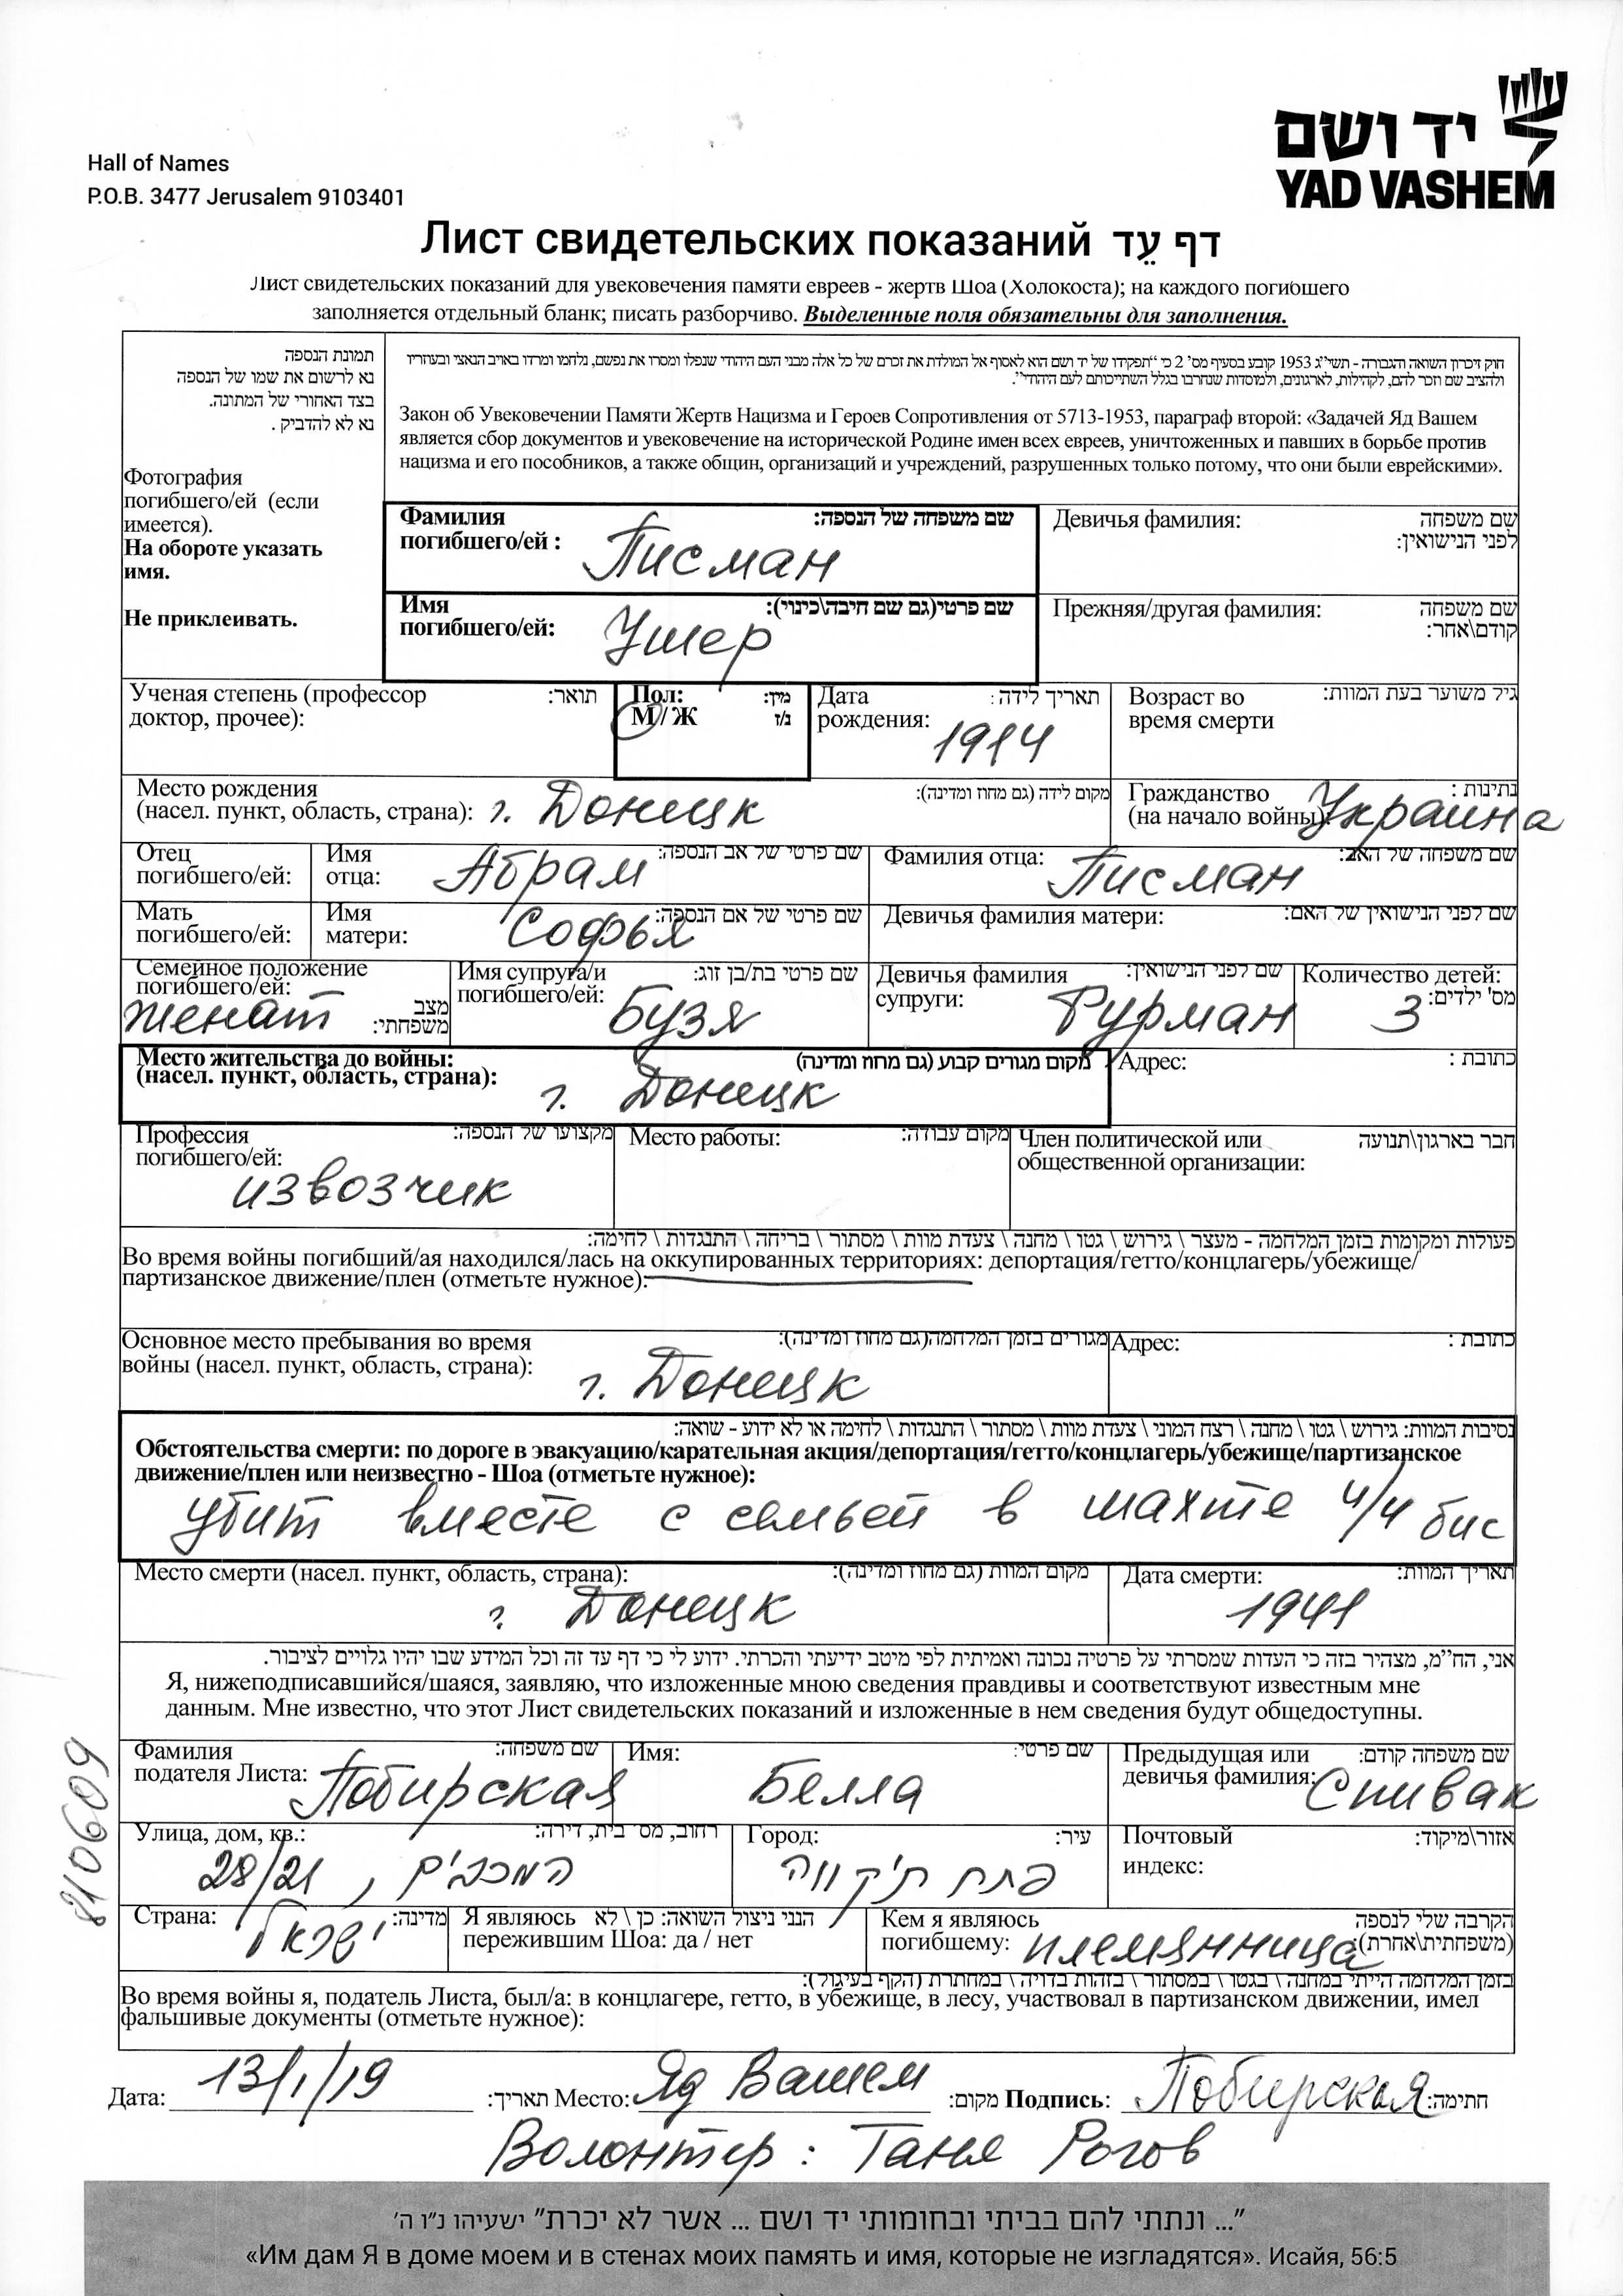 יד ושם
YAD VASHEM
Hall of Names
P.O.B. 3477 Jerusalem 9103401
Лист свидетельских показаний דף עֵד
Лист свидетельских показаний для увековечения памяти евреев - жертв Шоа (Холокоста); на каждого погибшего
заполняется отдельный бланк; писать разборчиво. Выделенные поля обязательны для заполнения.
תמונת הנספה
נא לרשום את שמו של הנספה
בצד האחורי של המתונה.
נא לא להדביק .
Фотография
погибшего/ей (если
имеется).
На обороте указать
имя.
Не приклеивать.
חוק זיכרון השואה והגבורה - תשי"ג 1953 קובע בסעיף מס' 2 כי "תפקידו של יד ושם הוא לאסוף אל המולדת את זכרם של כל אלה מבני העם היהודי שנפלו ומסרו את נפשם, נלחמו ומרדו באויב הנאצי ובעוזריו
ולהציב שם וזכר להם, לקהילות, לארגונים, ולמוסדות שנחרבו בגלל השתייכותם לעם היהודי".
Закон об Увековечении Памяти Жертв Нацизма и Героев Сопротивления от 5713-1953, параграф второй: «Задачей Яд Вашем
является сбор документов и увековечение на исторической Родине имен всех евреев, уничтоженных и павших в борьбе против
нацизма и его пособников, а также общин, организаций и учреждений, разрушенных только потому, что они были еврейскими».
Фамилия שם משפחה של הנספה: Девичья фамилия: שם משפחה
погибшего/ей : Писман לפני הנישואין:
Имя שם פרטי(גם שם חיבה\כינוי): Прежняя/другая фамилия: שם משפחה
погибшего/ей: Ушер קודם\אחר:
Ученая степень (профессор תואר: Пол: מין: Дата תאריך לידה : Возраст во גיל משוער בעת המוות:
доктор, прочее): М / Ж ז/נ рождения: 1914 время смерти
Место рождения מקום לידה (גם מחוז ומדינה): Гражданство נתינות :
(насел. пункт, область, страна): г. Донецк (на начало войны): Украина
Отец Имя שם פרטי של אב הנספה: Фамилия отца: שם משפחה של האב:
погибшего/ей: отца: Абрам Писман
Мать Имя שם פרטי של אם הנספה: Девичья фамилия матери: שם לפני הנישואין של האם:
погибшего/ей: матери: Софья
Семейное положение Имя супруга/и שם פרטי בת/בן זוג: Девичья фамилия שם לפני הנישואין: Количество детей:
погибшего/ей: מצב משפחתי: погибшего/ей: супруги: מס' ילדים:
женат Бузя Фурман 3
Место жительства до войны: מקום מגורים קבוע (גם מחוז ומדינה) Адрес: כתובת :
(насел. пункт, область, страна): г. Донецк
Профессия מקצועו של הנספה: Место работы: מקום עבודה: Член политической или חבר בארגון\תנועה
погибшего/ей: общественной организации:
извозчик
פעולות ומקומות בזמן המלחמה - מעצר \ גירוש \ גטו \ מחנה \ צעדת מוות \ מסתור \ בריחה \ התנגדות \ לחימה:
Во время войны погибший/ая находился/лась на оккупированных территориях: депортация/гетто/концлагерь/убежище/
партизанское движение/плен (отметьте нужное):
Основное место пребывания во время מגורים בזמן המלחמה(גם מחוז ומדינה): Адрес: כתובת :
войны (насел. пункт, область, страна): г. Донецк
נסיבות המוות: גירוש \ גטו \ מחנה \ רצח המוני \ צעדת מוות \ מסתור \ התנגדות \ לחימה או לא ידוע - שואה:
Обстоятельства смерти: по дороге в эвакуацию/карательная акция/депортация/гетто/концлагерь/убежище/партизанское
движение/плен или неизвестно - Шоа (отметьте нужное):
убит вместе с семьей в шахте 4/4 бис
Место смерти (насел. пункт, область, страна): מקום המוות (גם מחוז ומדינה): Дата смерти: תאריך המוות:
г. Донецк 1941
אני, הח"מ, מצהיר בזה כי העדות שמסרתי על פרטיה נכונה ואמיתית לפי מיטב ידיעתי והכרתי. ידוע לי כי דף עד זה וכל המידע שבו יהיו גלויים לציבור.
Я, нижеподписавшийся/шаяся, заявляю, что изложенные мною сведения правдивы и соответствуют известным мне
данным. Мне известно, что этот Лист свидетельских показаний и изложенные в нем сведения будут общедоступны.
Фамилия שם משפחה: Имя: שם פרטי: Предыдущая или שם משפחה קודם:
подателя Листа: Побирская Белла девичья фамилия: Спивак
Улица, дом, кв.: רחוב, מס' בית, דירה: Город: עיר: Почтовый אזור\מיקוד:
המכבים , 28/21 פתח תיקווה индекс:
Страна: מדינה: Я являюсь הנני ניצול השואה: כן \ לא Кем я являюсь הקרבה שלי לנספה
ישראל пережившим Шоа: да / нет погибшему: племянница (משפחתית\אחרת):
בזמן המלחמה הייתי במחנה \ בגטו \ במסתור \ בזהות בדויה \ במחתרת (הקף בעיגול):
Во время войны я, податель Листа, был/а: в концлагере, гетто, в убежище, в лесу, участвовал в партизанском движении, имел
фальшивые документы (отметьте нужное):
Дата: 13/1/19 תאריך: Место: Яд Вашем מקום: Подпись: Побирская חתימה:
Волонтер : Таня Рогов
8110609
"... ונתתי להם בביתי ובחומותי יד ושם ... אשר לא יכרת" ישעיהו נ"ו ה'
«Им дам Я в доме моем и в стенах моих память и имя, которые не изгладятся». Исайя, 56:5